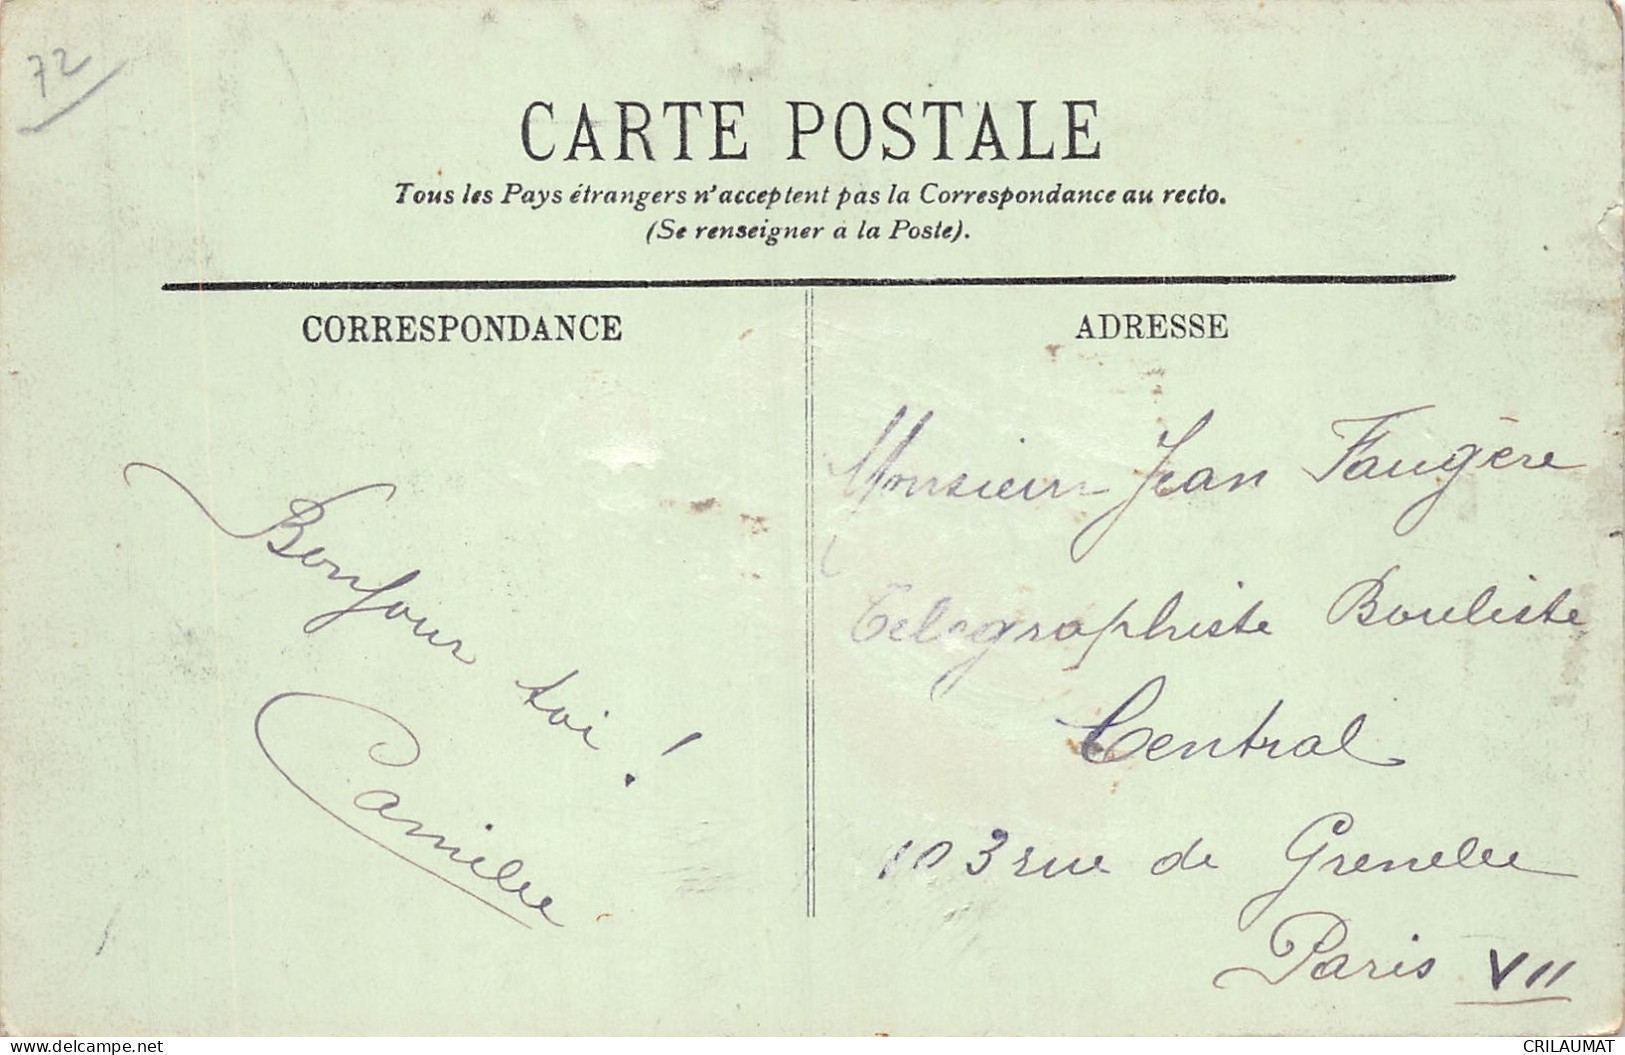 72
CARTE POSTALE
Tous les Pays étrangers n'acceptent pas la Correspondance au recto.
(Se renseigner à la Poste).
CORRESPONDANCE
Bonjour
toi !
Camille
ADRESSE
Monsieur Jean Faugère
Télégraphiste Bouliste
Central
103 rue de Grenelle
Paris VII
www.delcampe.net
CRILAUMAT